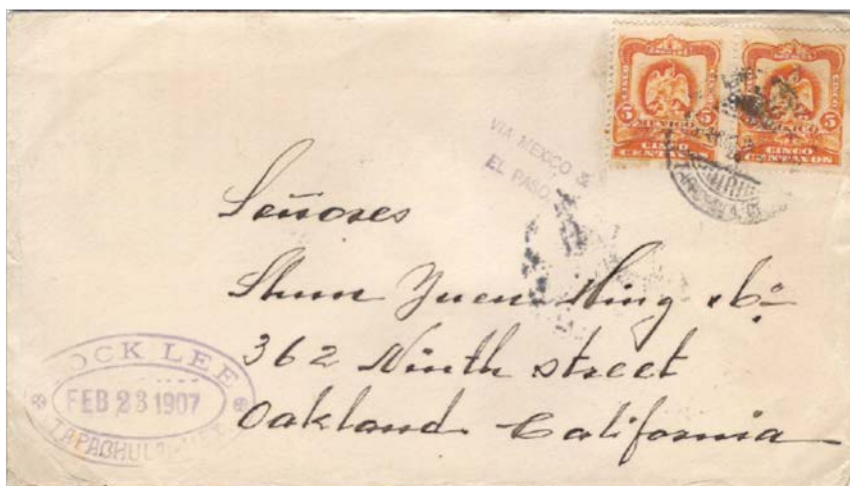 5 5
MEXICO
CINCO
CENTAVOS
5
CINCO
CENTAVOS
VIA MEXICO &
EL PASO
Señores
Shun Yuen Hing & Co
362 Ninth street
Oakland California
OCK LEE
FEB 23 1907
TAPACHULA